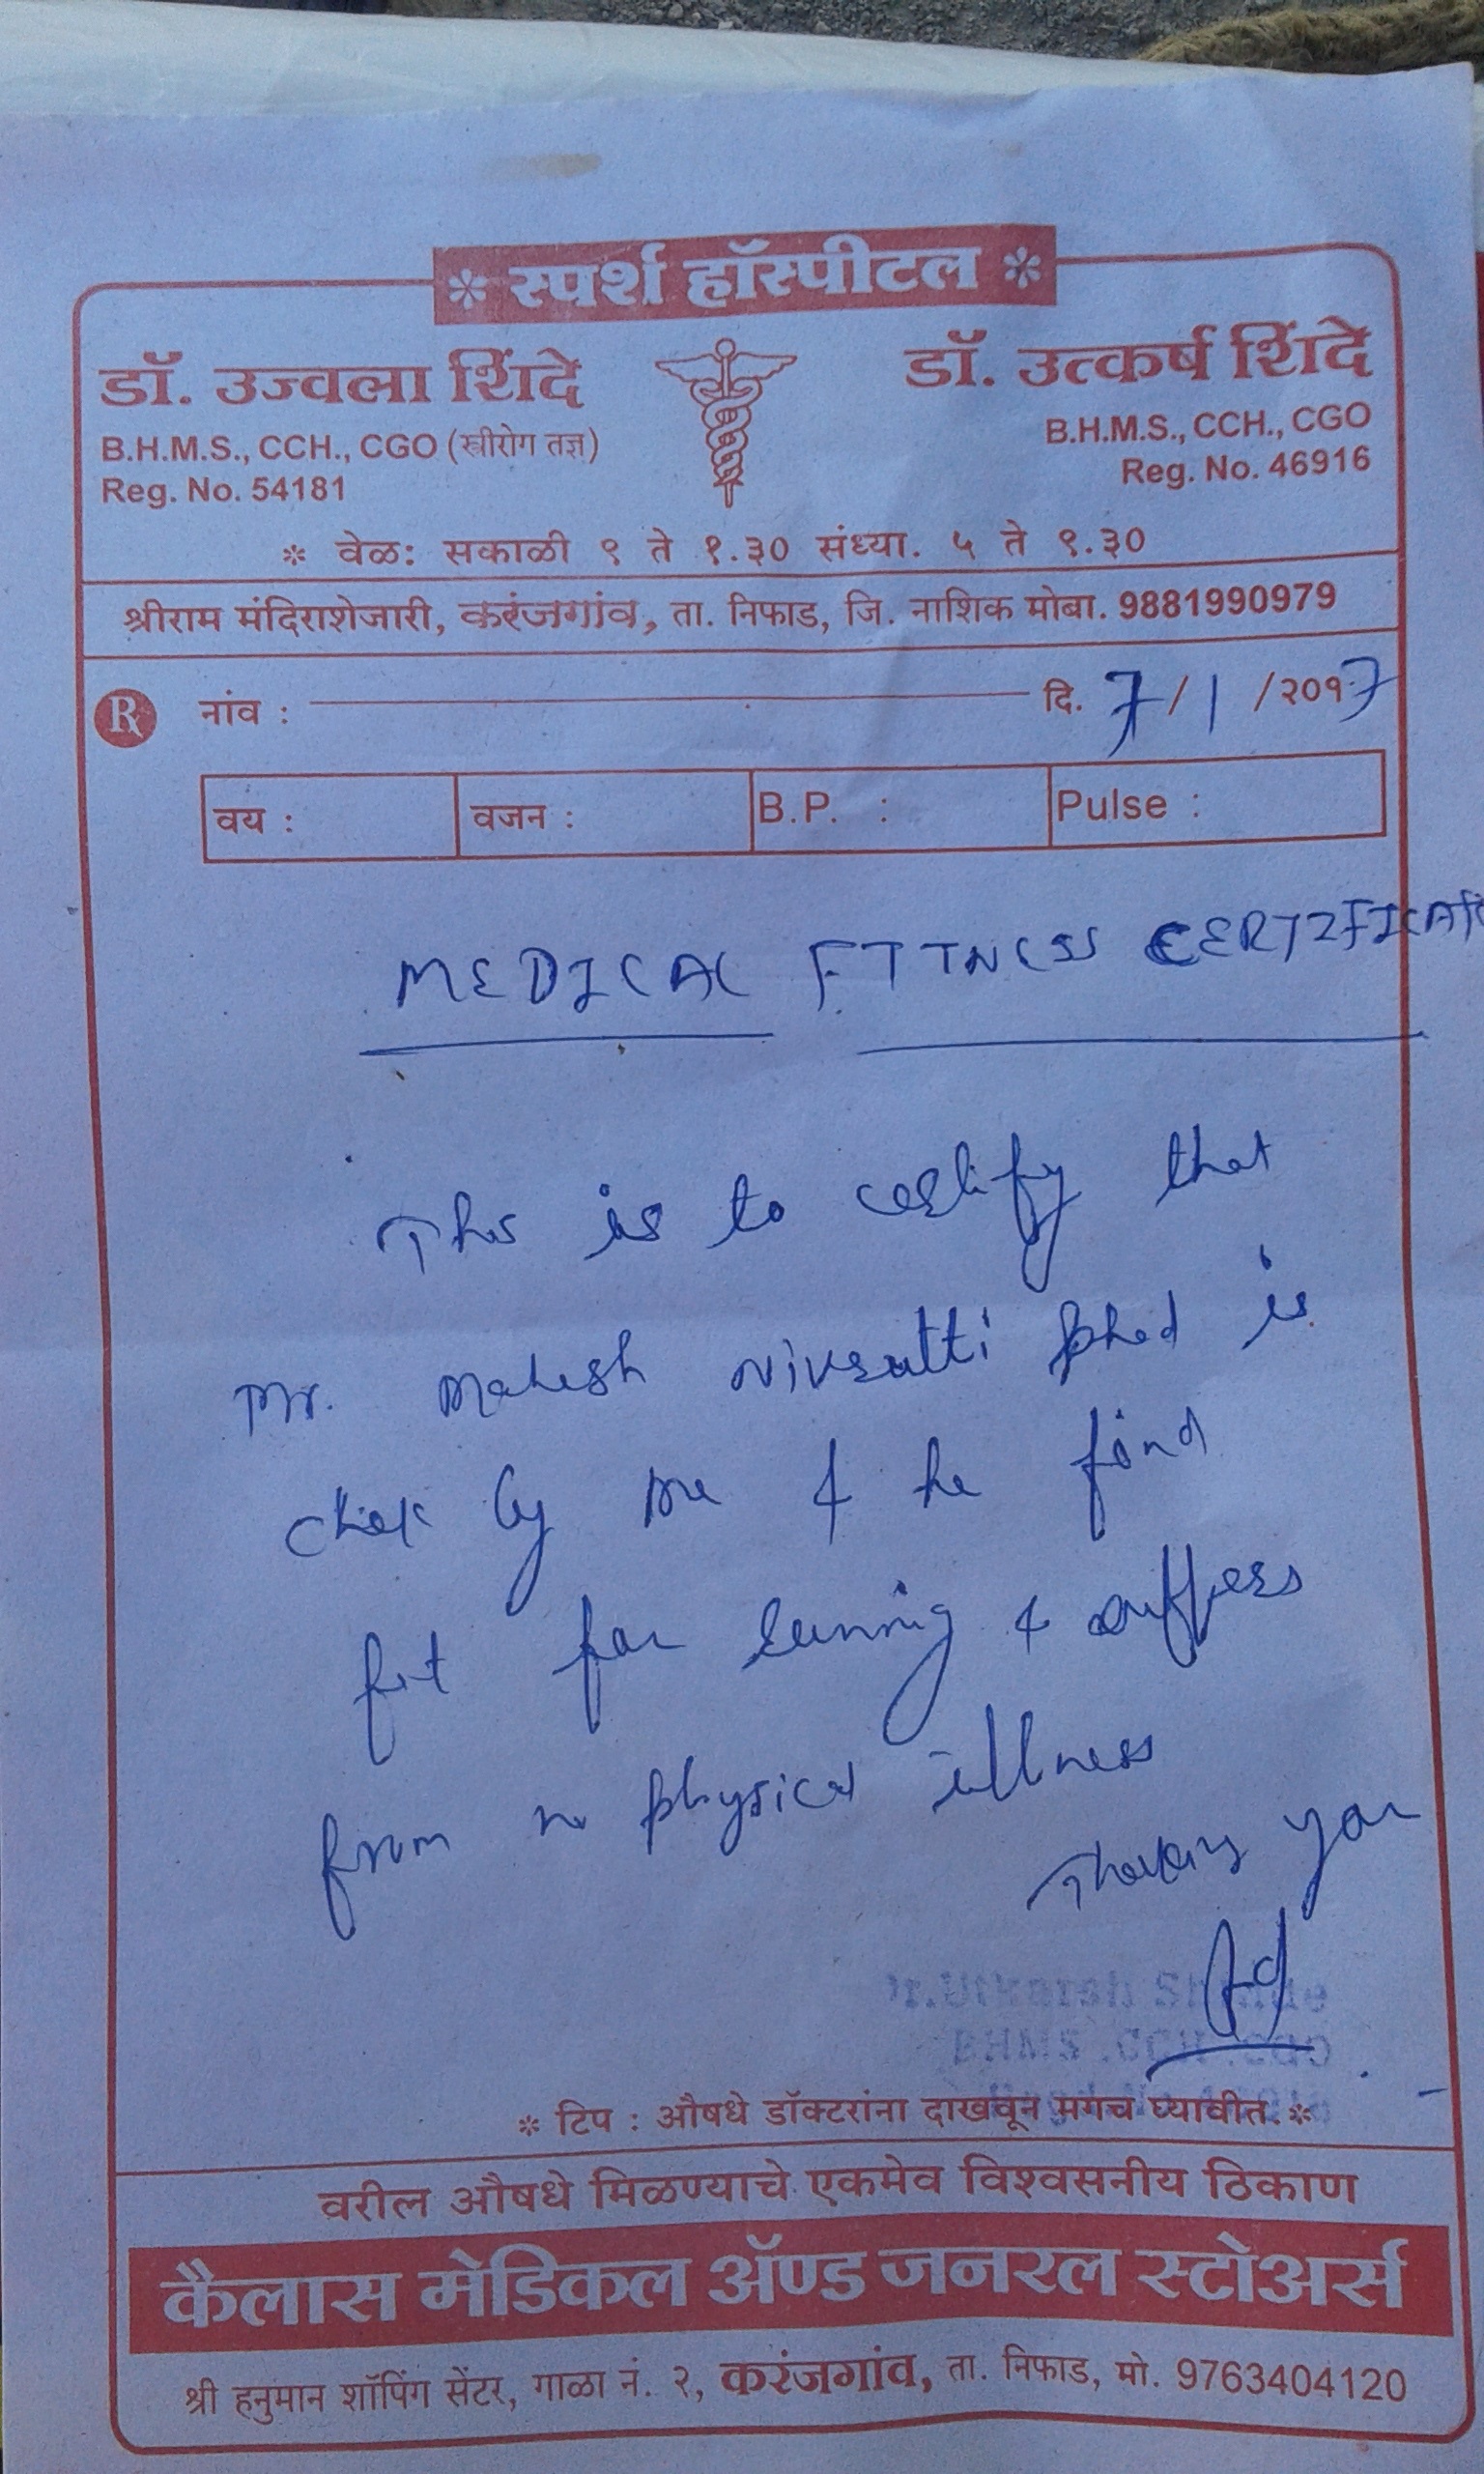 * स्पर्श हॉस्पीटल *
डॉ. उज्वला शिंदे
B.H.M.S., CCH., CGO (स्त्रीरोग तज्ञ)
Reg. No. 54181
डॉ. उत्कर्ष शिंदे
B.H.M.S., CCH., CGO
Reg. No. 46916
* वेळ: सकाळी ९ ते १.३० संध्या. ५ ते ९.३०
श्रीराम मंदिराशेजारी, करंजगांव, ता. निफाड, जि. नाशिक मोबा. 9881990979
R नांव : दि. 7/1/२०१7
वय : वजन : B.P. : Pulse :
MEDICAL FITTNESS CERTIFICATE
This is to certify that
Mr. Mahesh Nivrutti is
chek by me & he find
fit for running & suffers
from no physical illness
Thanking you
Dr.Utkarsh Shinde
BHMS .CCH .CGO
* टिप : औषधे डॉक्टरांना दाखवून मगच घ्यावीत. *
वरील औषधे मिळण्याचे एकमेव विश्वसनीय ठिकाण
कैलास मेडिकल ॲण्ड जनरल स्टोअर्स
श्री हनुमान शॉपिंग सेंटर, गाळा नं. २, करंजगांव, ता. निफाड, मो. 9763404120